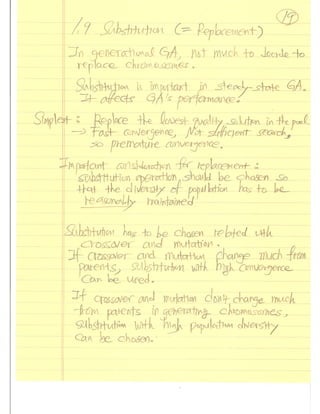 19
1.9 Substitution (= Replacement)
In generational GA, not much to decide to
replace chromosomes.
Substitution is important in steady-state GA.
It affects GA's performance.
Simplest : Replace the lowest quality solution in the pool
→ Fast convergence, Not sufficient search,
so premature convergence.
Important consideration for replacement :
substitution operation should be chosen so
that the diversity of population has to be
reasonably maintained
Substitution has to be chosen related with
crossover and mutation.
If crossover and mutation change much from
parents, substitution with high convergence
can be used.
If crossover and mutation don't change much
from parents in generating chromosomes,
substitution with high population diversity
can be chosen.